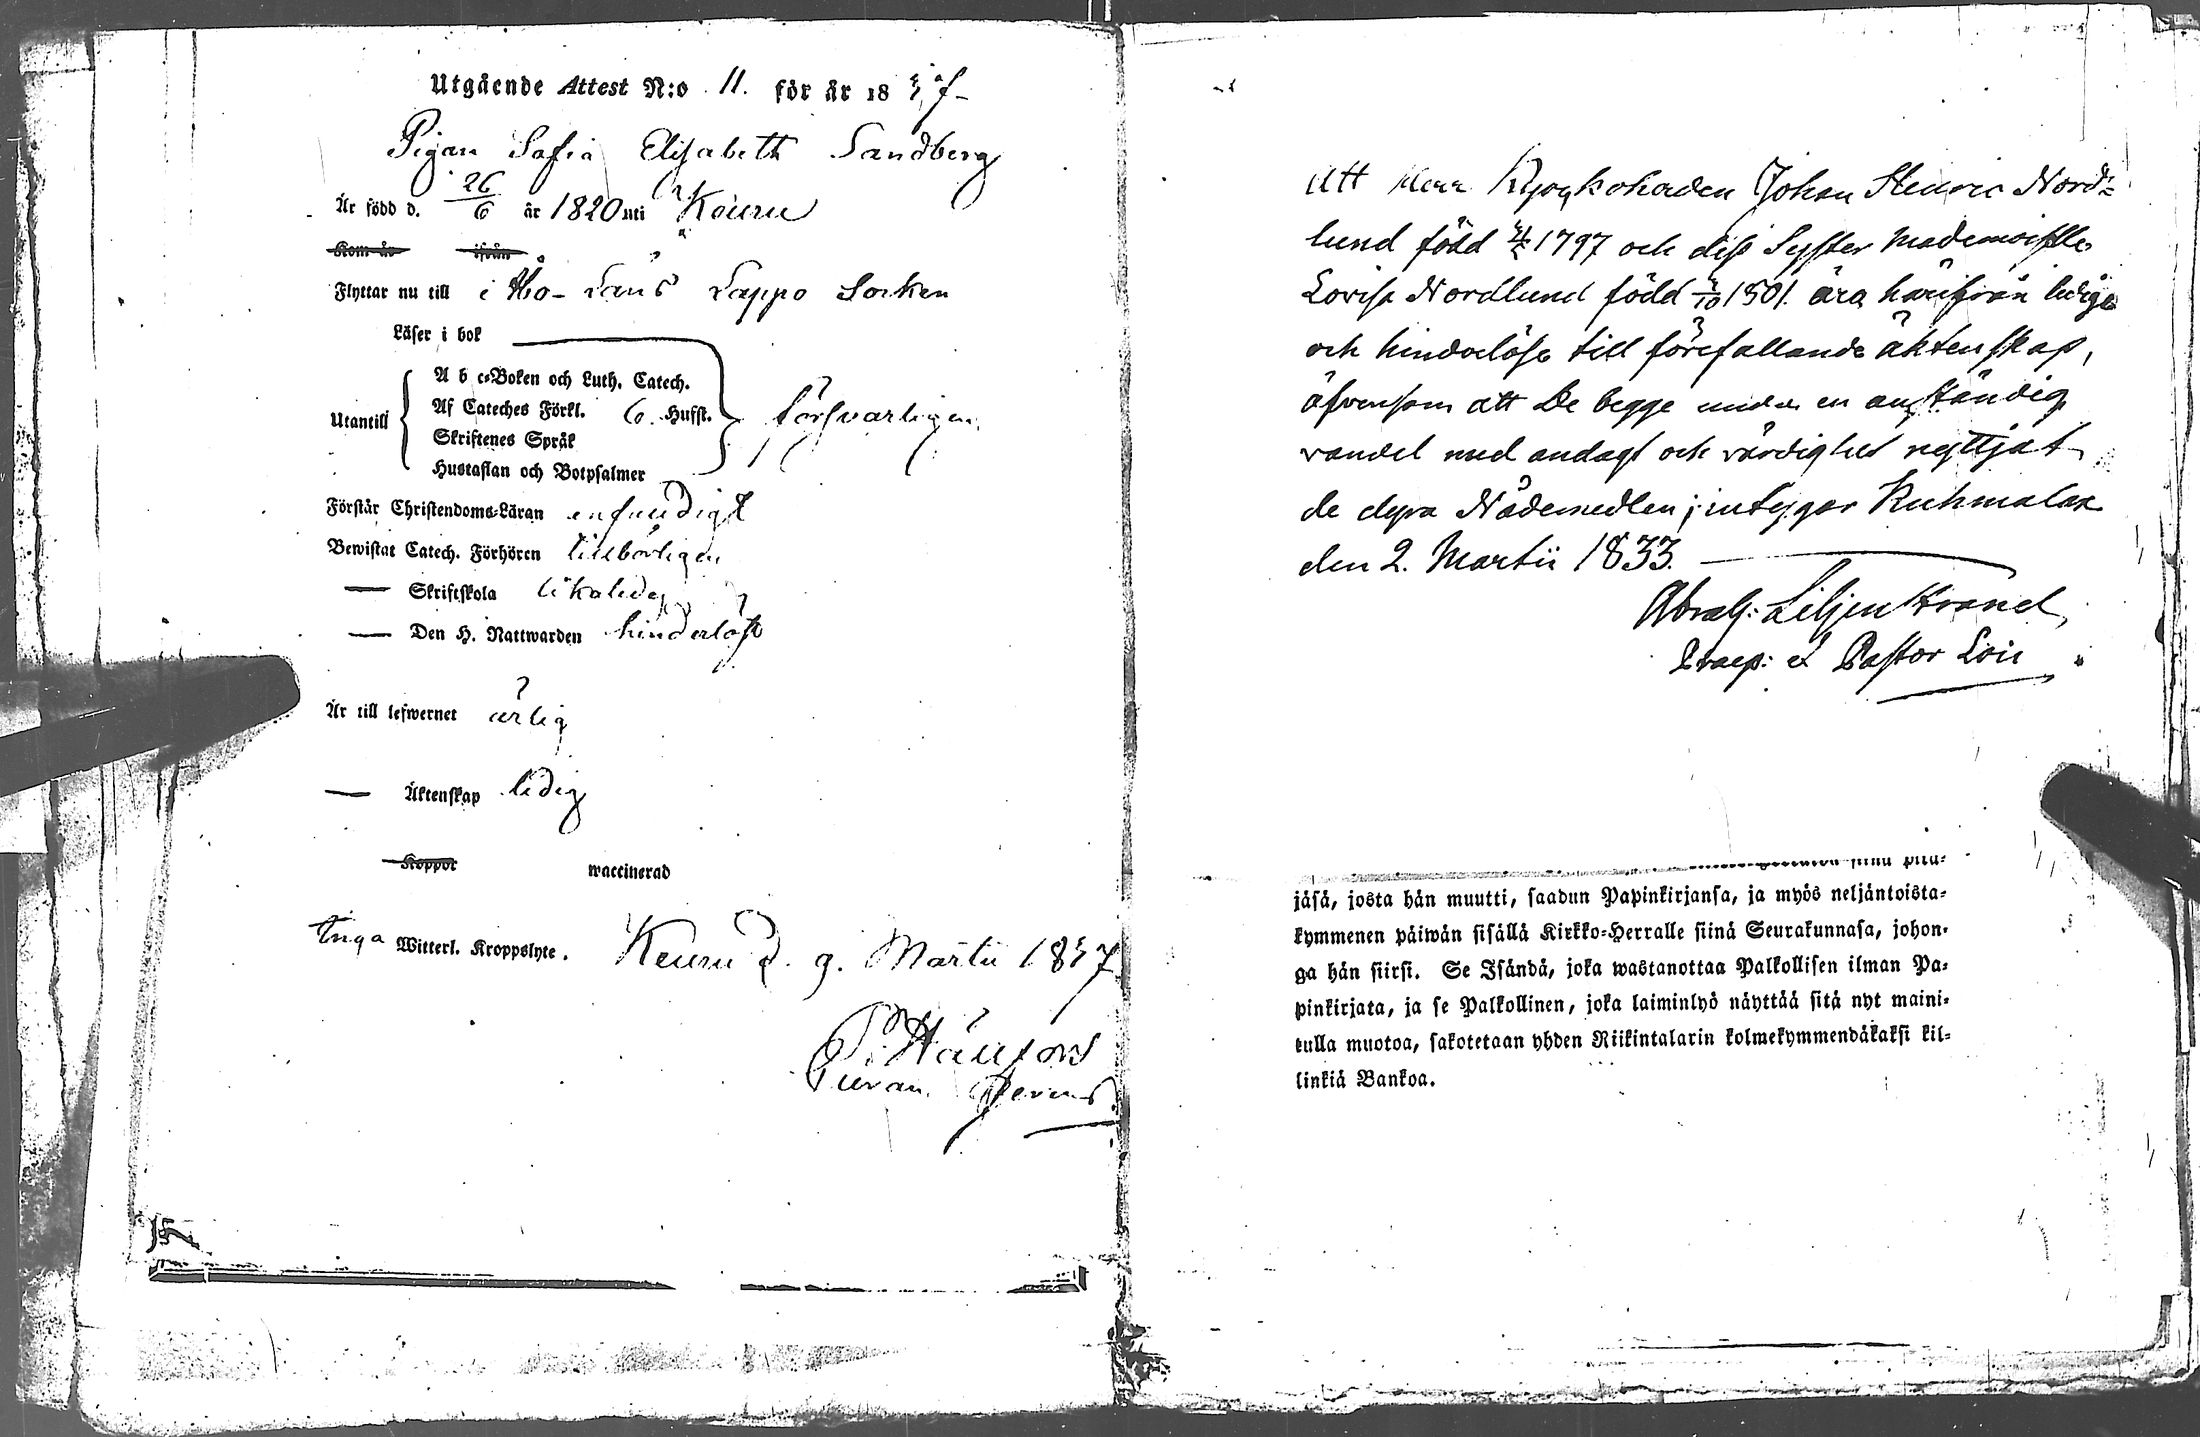 Utgående Attest N:o 11. för år 18
Pigan Sofia Elisabeth Sandberg
Är född d. 26/6 år 1820 uti Keuru
Kom år ifrån
Flyttar nu till i Åbo Läns Lappo Socken
Läser i bok
A b c-Boken och Luth. Catech.
Utantill Af Cateches Förkl. 6. Hufst. försvarligen
Skriftenes Språk
Hustaflan och Botpsalmer
Förstår Christendoms-Läran enfaldigt
Bewistat Catech. Förhören tillbörligen
— Skriftskola likaledes
— Den H. Nattwarden hinderlöst
Är till lefwernet ärlig
— Äktenskap ledig
Koppor waccinerad
Inga Witterl. Kroppslyte. Keuru d. 9. Martii
15
Att Herr Johan Henric Nord=
lund född 1797 och dess Syster Mademoiselle
Lovisa Nordlund född 1801. äro härifrån lediga
och hinderlösa till förefallande äktenskap,
äfvensom att De begge under en anständig
vandel med andagt och värdighet nyttjat
de dyra Nådemedlen; intygar Kuhmalax
den 2. Martii 1833.
Abrah: Liljenstrand
Praep: et Pastor Loci
jäsä, josta hän muutti, saadun Papinkirjansa, ja myös neljäntoista-
kymmenen päiwän sisällä Kirkko-Herralle siinä Seurakunnasa, johon-
ga hän siirsi. Se Isändä, joka wastanottaa Palkollisen ilman Pa-
pinkirjata, ja se Palkollinen, joka laiminlyö näyttää sitä nyt maini-
tulla muotoa, sakotetaan yhden Riikintalarin kolmekymmendäkaksi kil-
linkiä Bankoa.